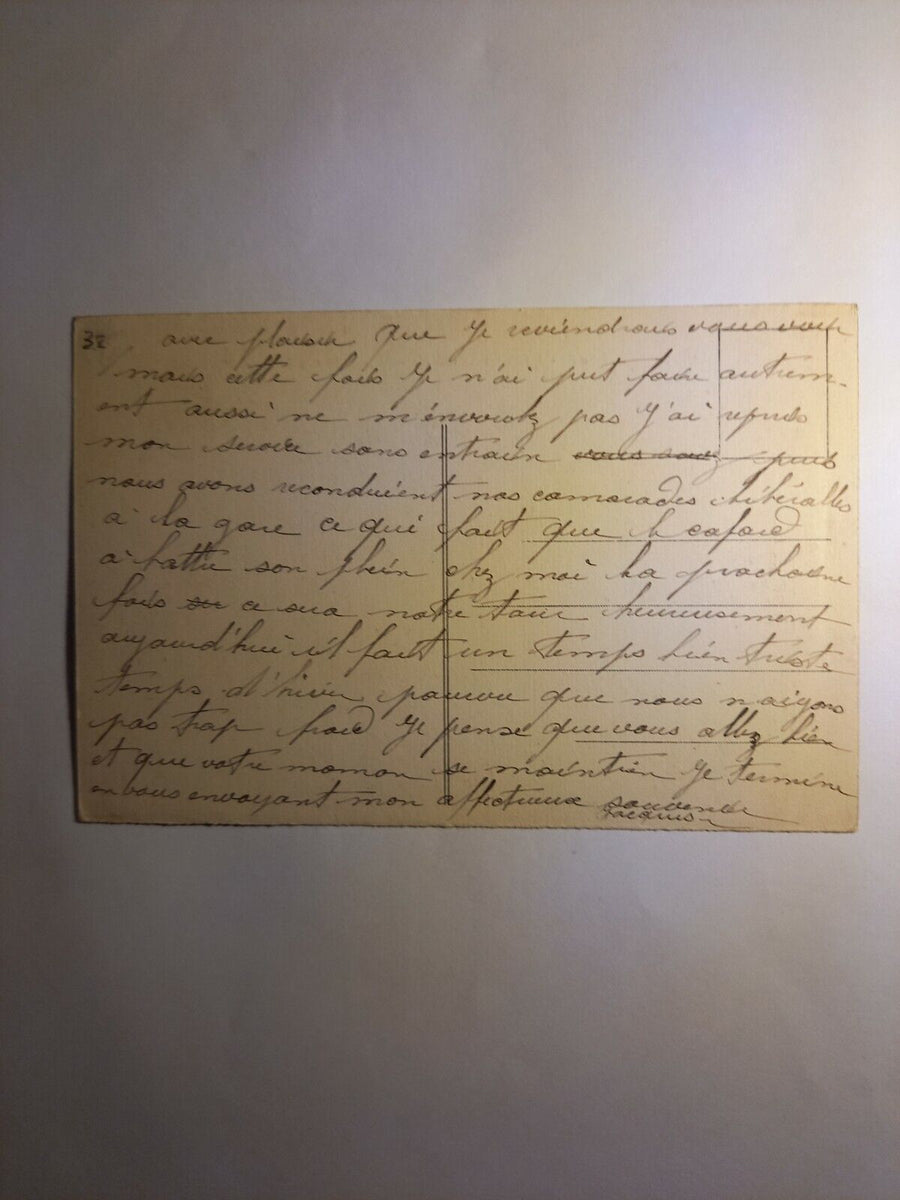 32
avec plaisir que je reviendrais vous voir
mais cette fois je n'ai put faire autrem-
ent aussi ne m'en voulez pas j'ai repris
mon service sans entrain vous savez puis
nous avons reconduient nos camarades libérables
à la gare ce qui fait que le cafard
à battu son plein chez moi la prochaine
fois ce sera notre tour heureusement
aujourd'hui il fait un temps bien triste
temps d'hiver pourvu que nous n'aigons
pas trop froid je pense que vous allez bien
et que votre maman se maintien je termine
en vous envoyant mon affectueux souvenir